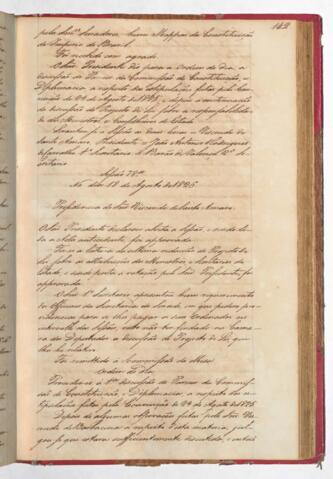 142
pelo Snr. Senadores hum Mappa da Constituição
do Imperio do Brasil.
Foi recebido com agrado.
O Snr. Presidente deo para a ordem do dia, a
discussão do Parecer da Commissão de Constituição, e
Diplomacia, a respeito das estipulações feitas pela Con-
venção de 29 de Agosto de 1825, depois a continuação
da discussão do Projecto de Lei sobre a responsabilida-
de dos Ministros, e Conselheiros de Estado.
Levantou-se a Sessão ás duas horas = Visconde de
Santo Amaro, Presidente = João Antonio Rodrigues
de Carvalho, 1º Secretario = Barão de Valença, 2º Se-
cretario.
Sessão 78ª
No dia 18 de Agosto de 1826.
Presidencia do Snr. Visconde de Santo Amaro.
O Snr. Presidente declarou aberta a Sessão, e sendo li-
da a Acta antecedente foi approvada.
Fez-se a leitura da redacção do Projecto de
Lei sobre as attribuições dos Ministros, e Secretarios de
Estado, e sendo posta á votação pelo Snr. Presidente foi
approvada.
O Snr. 1º Secretario apresentou hum requerimento
do Official da Secretaria do Senado, em que pedem pro-
videncias para se lhes pagar o seu Ordenado no
intervallo das Sessões, visto não ter findado na Cama-
ra dos Deputados a discussão do Projecto de Lei, que
lhe he relativo.
Foi remettido á Commissão da Mesa.
Ordem do dia.
Principiou-se a 1ª discussão do Parecer da Commis-
são de Constituição, e Diplomacia, a respeito das es-
tipulações feitas pela Convenção de 29 de Agosto de 1825.
Depois de algumas observações feitas pelo Snr. Vis-
conde de Barbacena a respeito desta materia, jul-
gou-se que estava sufficientemente discutida, e entrou